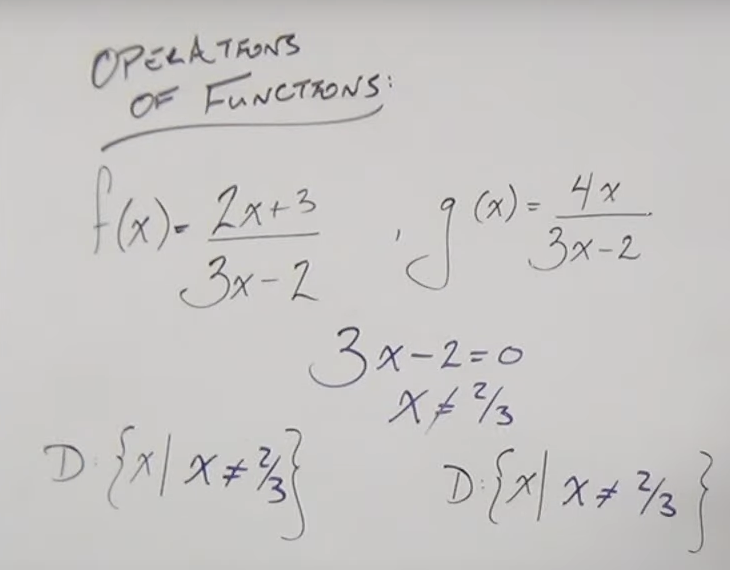 OPERATIONS
OF FUNCTIONS:
f(x)= 2x+3 / 3x-2 , g(x)= 4x / 3x-2
3x-2=0
x ≠ 2/3
D: {x| x ≠ 2/3} D: {x| x ≠ 2/3}